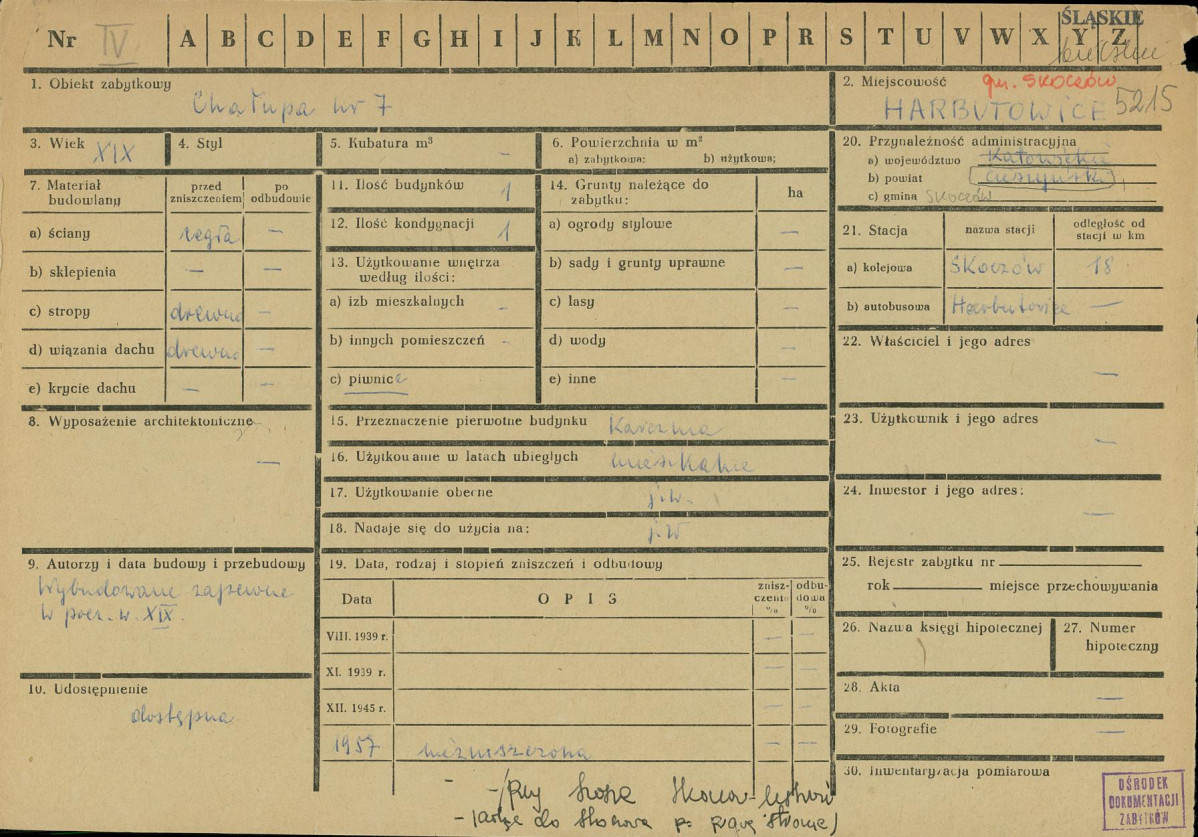 ŚLĄSKIE
Nr IV A B C D E F G H I J K L M N O P R S T U V W X Y Z
1. Obiekt zabytkowy
Chałupa nr 7
2. Miejscowość gm. SKOCZÓW
HARBUTOWICE 5215
3. Wiek XIX
4. Styl
5. Kubatura m³ —
6. Powierzchnia w m²
a) zabytkowa: b) użytkowa;
20. Przynależność administracyjna
a) województwo Katowickie
b) powiat cieszyński
c) gmina SKOCZÓW
7. Materiał budowlany
przed zniszczeniem
po odbudowie
a) ściany cegła —
b) sklepienia — —
c) stropy drewno —
d) wiązania dachu drewno —
e) krycie dachu — —
11. Ilość budynków 1
12. Ilość kondygnacji 1
13. Użytkowanie wnętrza
według ilości:
a) izb mieszkalnych -
b) innych pomieszczeń -
c) piwnice
14. Grunty należące do
zabytku: ha
a) ogrody stylowe —
b) sady i grunty uprawne —
c) lasy —
d) wody —
e) inne —
21. Stacja
nazwa stacji
odległość od
stacji w km
a) kolejowa Skoczów 18
b) autobusowa Harbutowice —
22. Właściciel i jego adres
—
23. Użytkownik i jego adres
—
24. Inwestor i jego adres:
—
8. Wyposażenie architektoniczne
—
15. Przeznaczenie pierwotne budynku Karczma
16. Użytkowanie w latach ubiegłych mieszkalne
17. Użytkowanie obecne j.w.
18. Nadaje się do użycia na: j.w
9. Autorzy i data budowy i przebudowy
Wybudowane zapewne
w pocz. w. XIX.
10. Udostępnienie
dostępna
19. Data, rodzaj i stopień zniszczeń i odbudowy
Data OPIS
znisz-
czenia
%
odbu-
dowa
%
VIII. 1939 r. — —
XI. 1939 r. — —
XII. 1945 r. — —
1957 niezniszczona — —
25. Rejestr zabytku nr
rok miejsce przechowywania
26. Nazwa księgi hipotecznej
27. Numer
hipoteczny
28. Akta —
29. Fotografie —
30. Inwentaryzacja pomiarowa
- przy szosie
do po prawej stronie)
OŚRODEK
DOKUMENTACJI
ZABYTKÓW